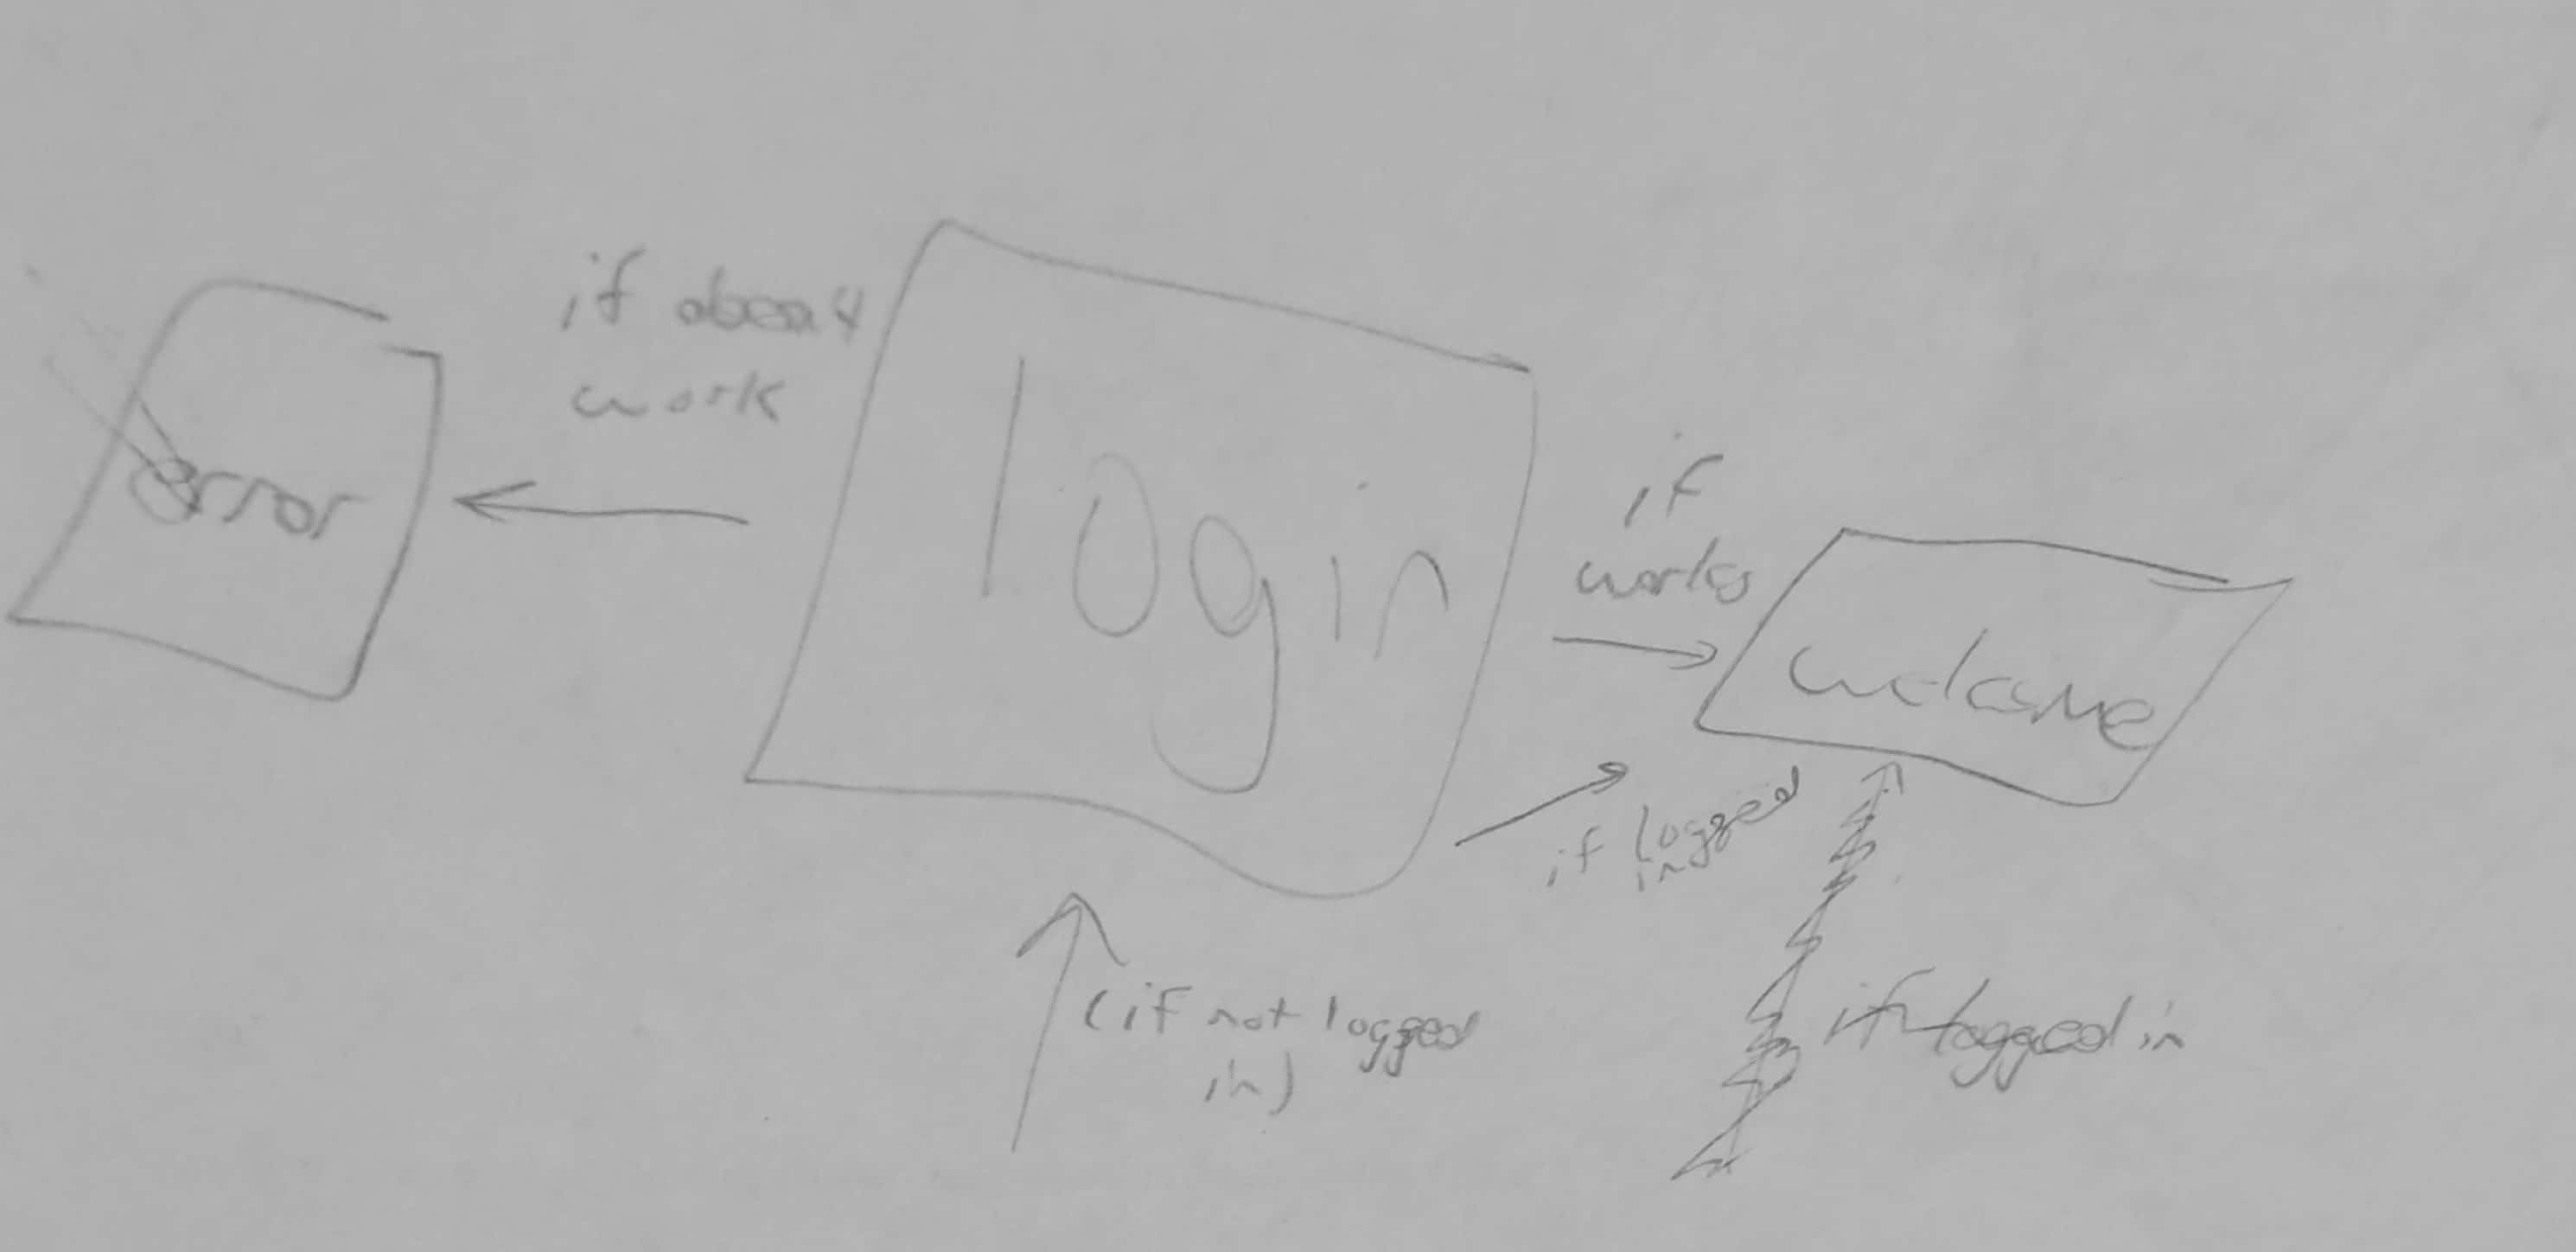 if doesn't
work
error
login
if
works
welcome
if logged
in
(if not logged
in)
if logged in